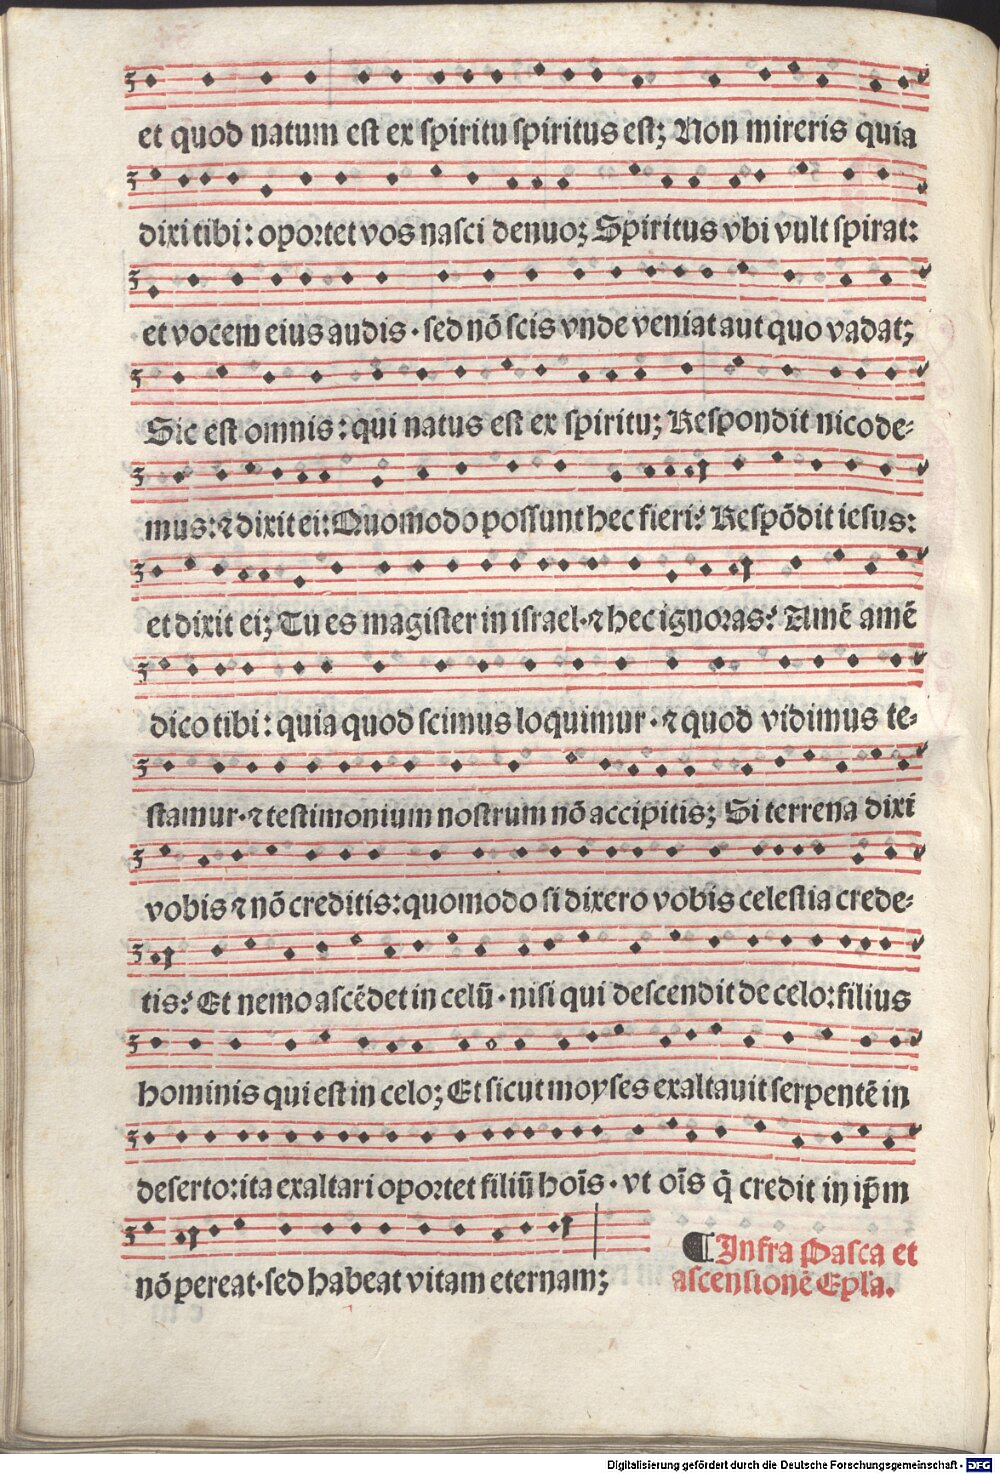 et quod natum est ex spiritu spiritus est; Non mireris quia
dixi tibi: oportet vos nasci denuo; Spiritus vbi vult spirat:
et vocem eius audis · sed nō scis vnde veniat aut quo vadat;
Sic est omnis: qui natus est ex spiritu; Respondit nicode⸗
mus: ⁊ dixit ei: Quomodo possunt hec fieri? Respōdit iesus:
et dixit ei; Tu es magister in israel · ⁊ hec ignoras? Amē amē
dico tibi: quia quod scimus loquimur · ⁊ quod vidimus te⸗
stamur · ⁊ testimonium nostrum nō accipitis; Si terrena dixi
vobis ⁊ nō creditis: quomodo si dixero vobis celestia crede⸗
tis? Et nemo ascēdet in celū · nisi qui descendit de celo: filius
hominis qui est in celo; Et sicut moyses exaltauit serpentē in
deserto: ita exaltari oportet filiū hoīs · vt oīs q̄ credit in ip̄m
nō pereat · sed habeat vitam eternam;
¶ Infra Pasca et
ascensionē Epla.
Digitalisierung gefördert durch die Deutsche Forschungsgemeinschaft - DFG